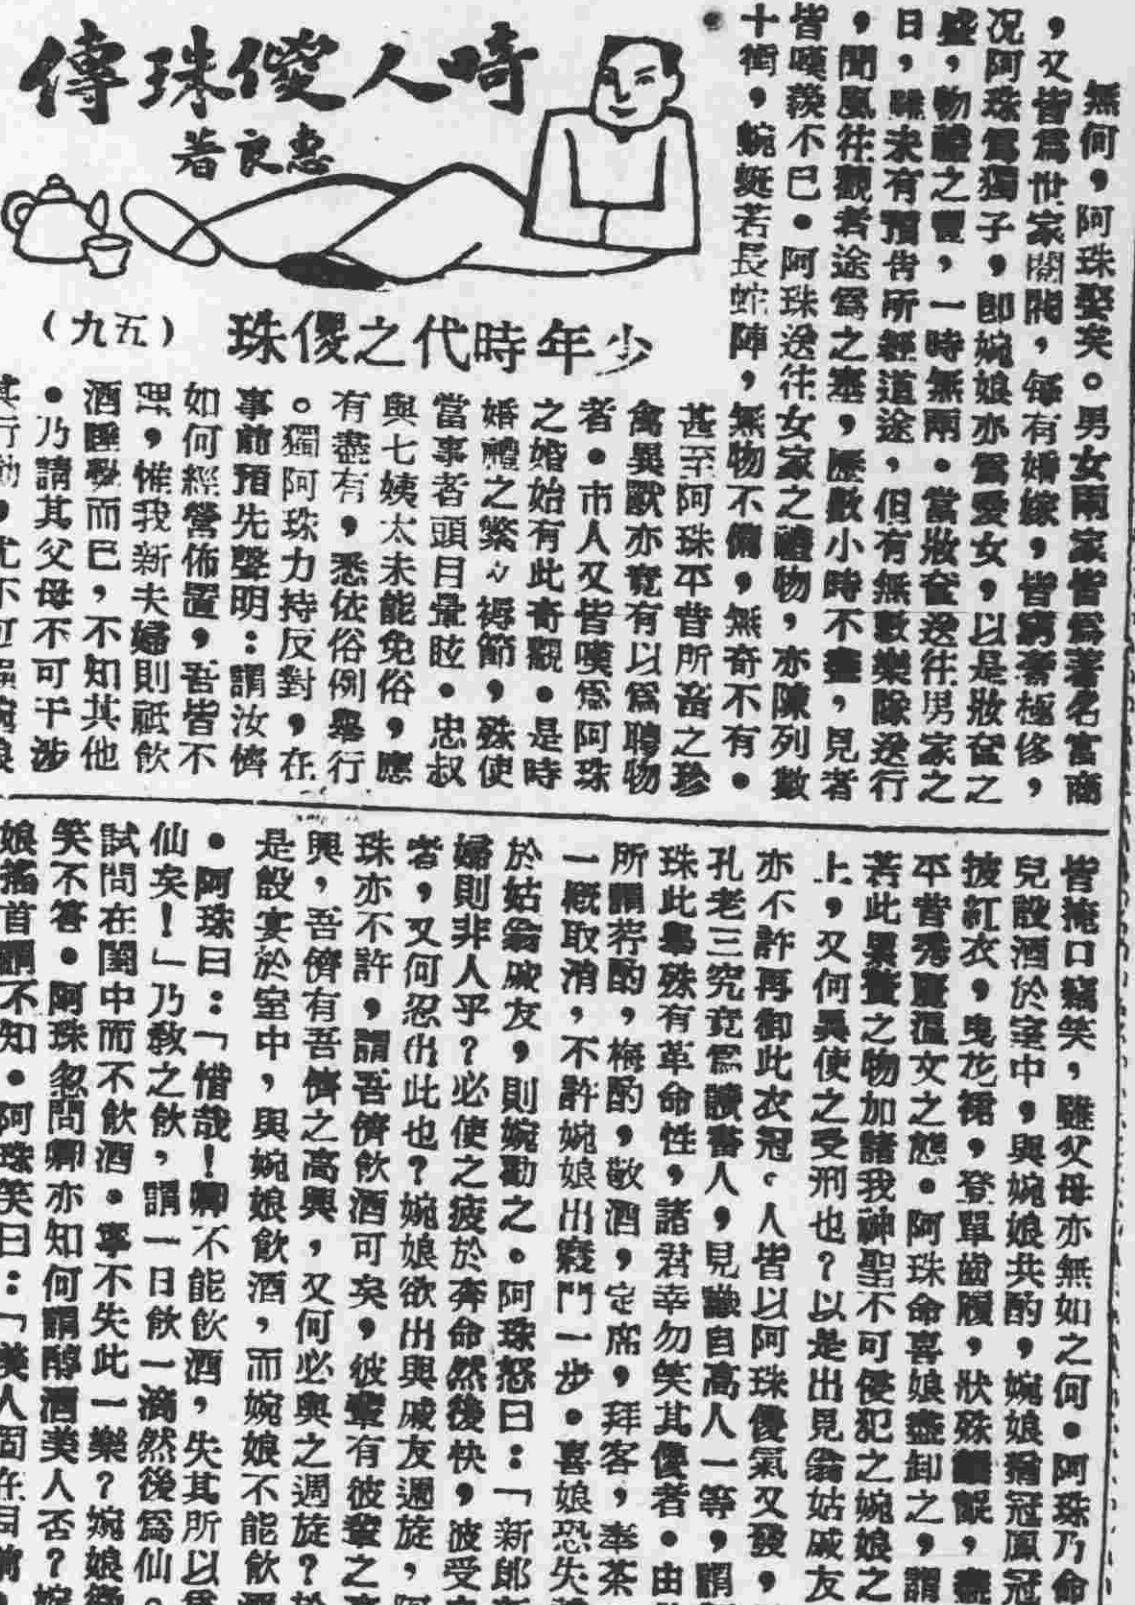 畸人儍珠傳
惠良著
少年時代之儍珠
（五九）
無何，阿珠娶矣。男女兩家皆爲著名富商
，又皆爲世家閥閱，每有婚嫁，皆窮奢極侈，
况阿珠爲獨子，卽婉娘亦爲愛女，以是妝奩之
盛，物禮之豐，一時無兩．當妝奩送往男家之
日，雖未有預告所經道途，但有無數樂隊送行
，聞風往觀者途爲之塞，歷數小時不盡，見者
皆嘆羡不已．阿珠送往女家之禮物，亦陳列數
十街，蜿蜒若長蛇陣，無物不備，無奇不有．
甚至阿珠平昔所畜之珍
禽異獸亦竟有以爲聘物
者．市人又皆嘆爲阿珠
之婚始有此奇觀．是時
婚禮之繁文縟節，殊使
當事者頭目暈眩．忠叔
與七姨太未能免俗，應
有盡有，悉依俗例舉行
。獨阿珠力持反對，在
事前預先聲明：謂汝儕
如何經營佈置，吾皆不
理，惟我新夫婦則祗飲
酒睡覺而已，不知其他
．乃請其父母不可干涉
其行動，尤不可
皆掩口竊笑，雖父母亦無如之何．阿珠乃命
兒設酒於室中，與婉娘共酌，婉娘猶冠鳳冠
披紅衣，曳花裙，登單齒履，狀殊
平昔秀麗溫文之態．阿珠命喜娘盡卸之，謂
若此累贅之物加諸我神聖不可侵犯之婉娘之
上，又何異使之受刑也？以是出見翁姑戚友
亦不許再御此衣冠．人皆以阿珠儍氣又發，
孔老三究竟爲讀書人，見識自高人一等，謂
珠此舉殊有革命性，諸君幸勿笑其儍者．由
所謂荐酌，梅酌，敬酒，定席，拜客，奉茶
一概取消，不許婉娘出寢門一步．喜娘恐失
於姑翁戚友，則婉勸之。阿珠怒曰：「新郎
婦則非人乎？必使之疲於奔命然後快，彼受
者，又何忍出此也？婉娘欲出與戚友週旋，
珠亦不許，謂吾儕飲酒可矣，彼輩有彼輩之
興，吾儕有吾儕之高興，又何必與之週旋？於
是設宴於室中，與婉娘飲酒，而婉娘不能飲
．阿珠曰：「惜哉！卿不能飲酒，失其所以爲
仙矣！」乃敎之飲，謂一日飲一滴然後爲仙。
試問在閨中而不飲酒．寧不失此一樂？婉娘
笑不答．阿珠忽問卿亦知何謂醇酒美人否？
娘搖首謂不知．阿珠笑曰：「美人固在目前